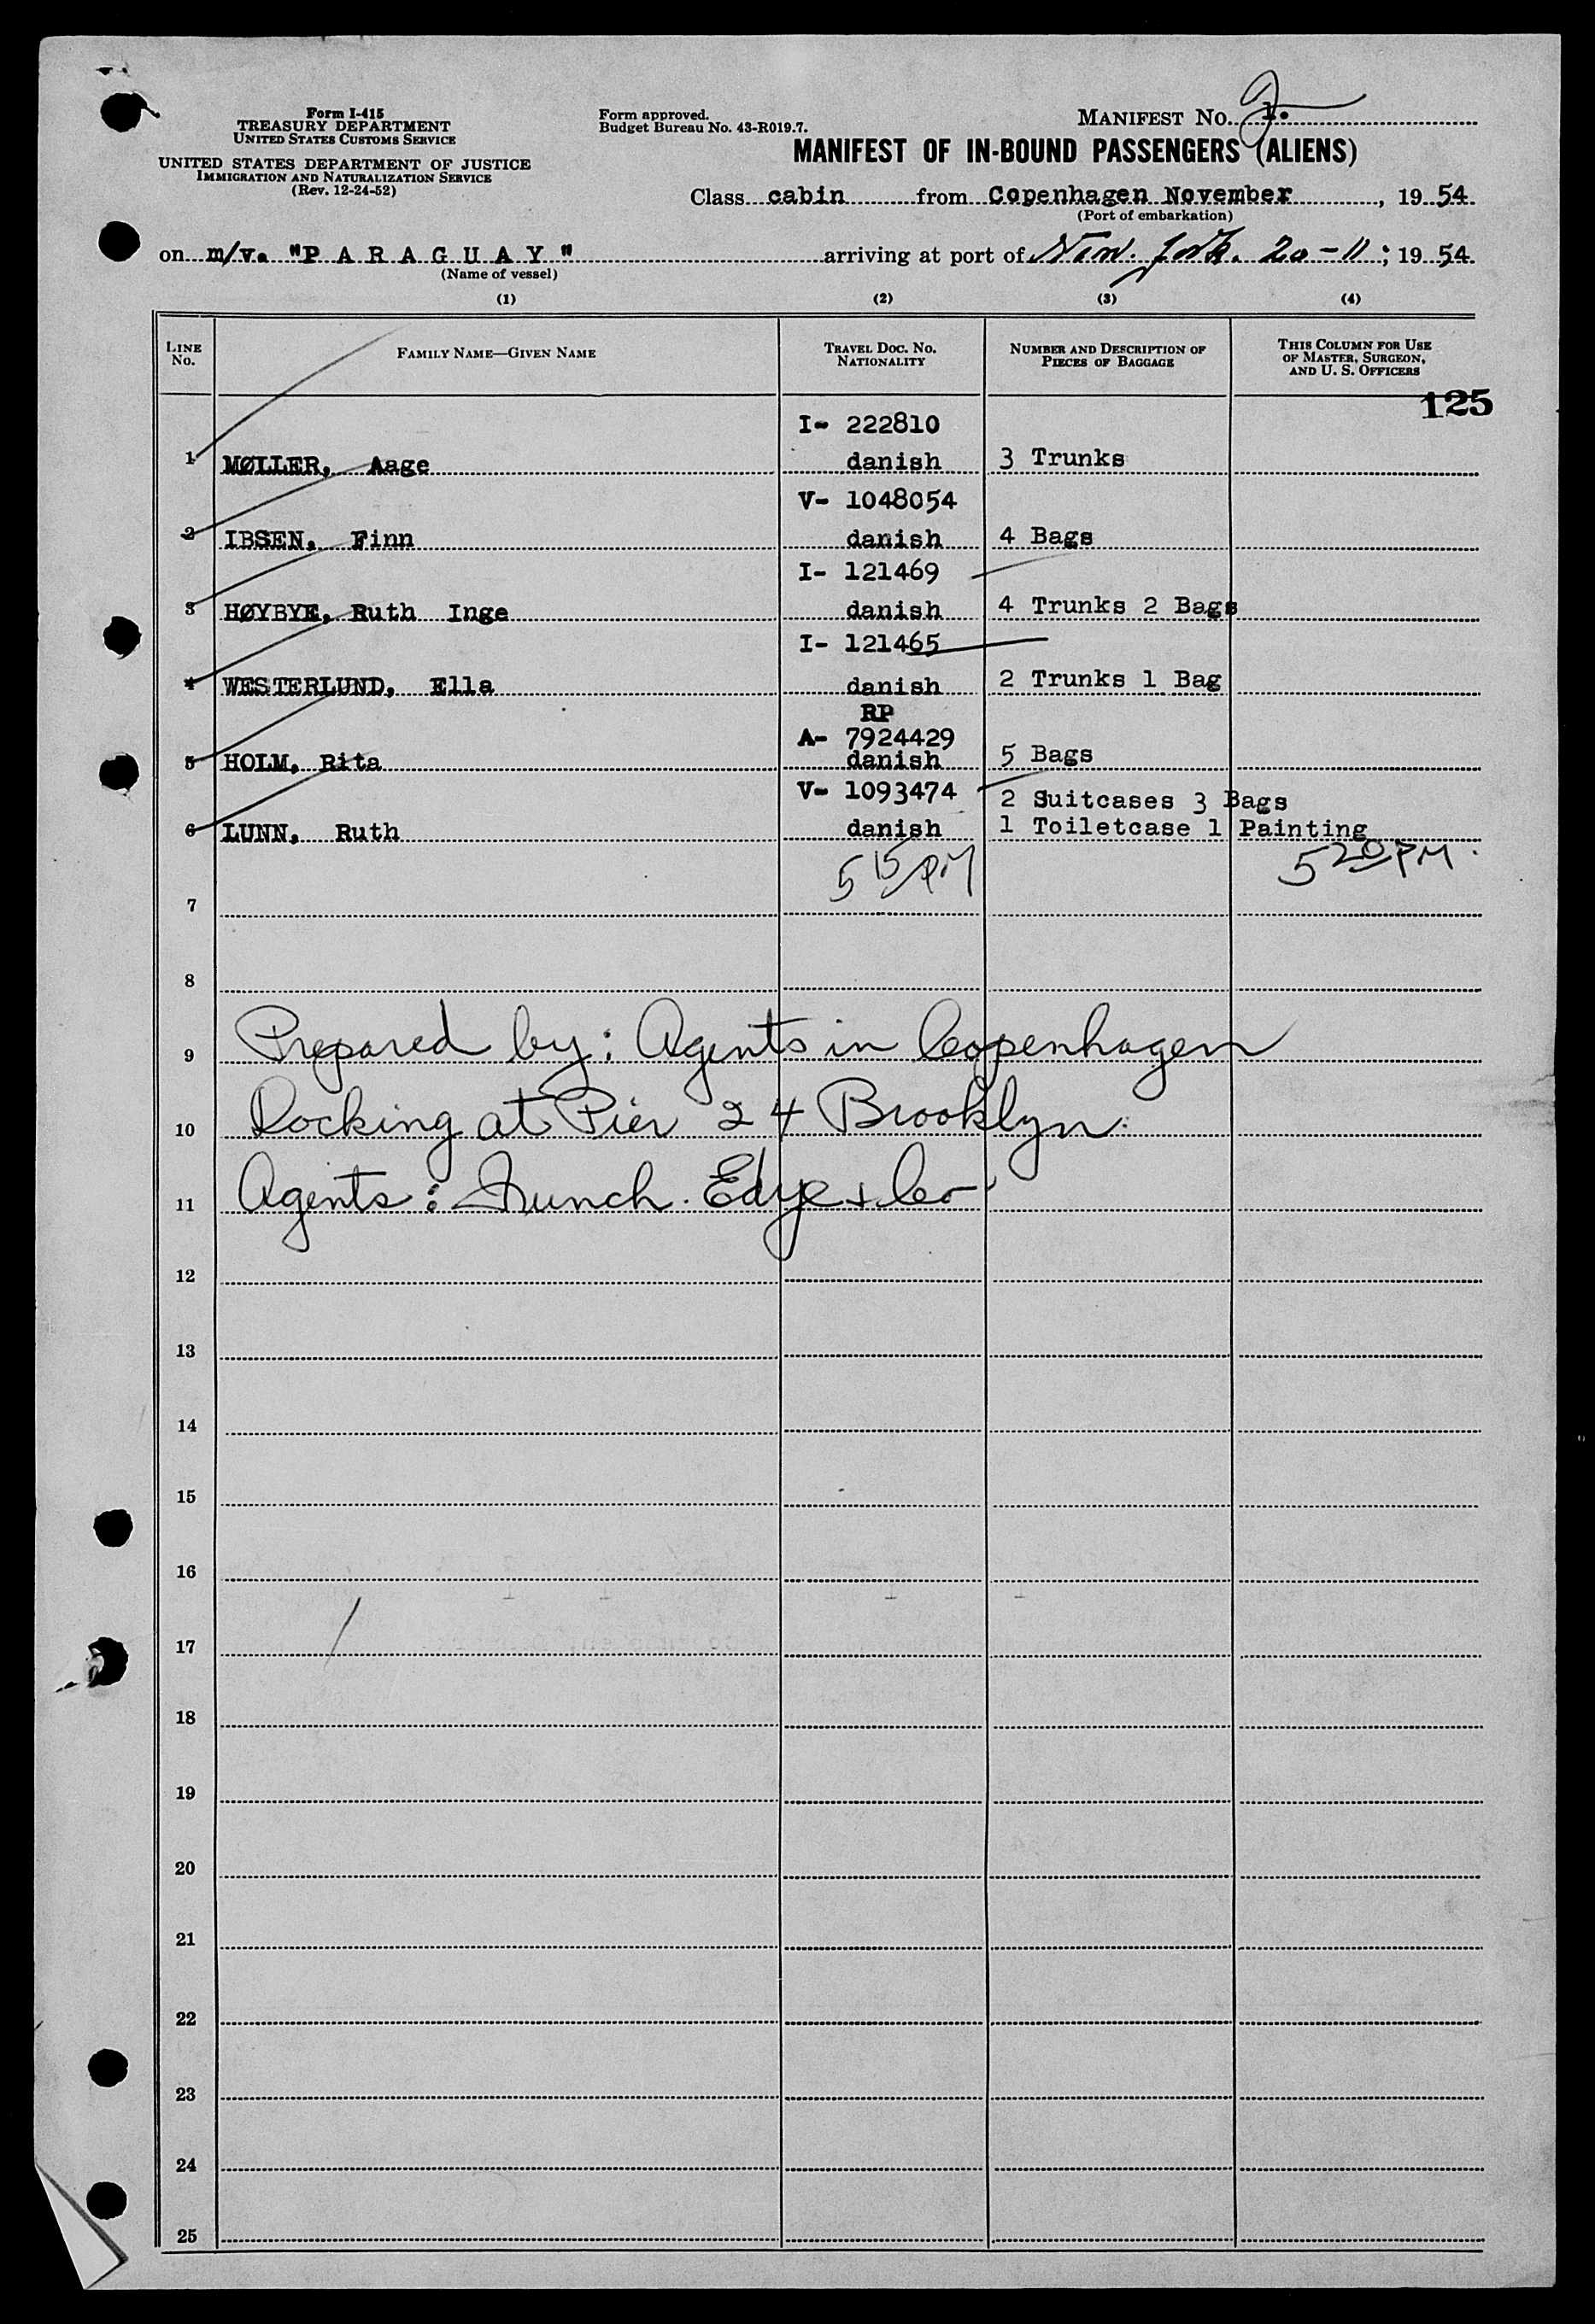 Form I-415
TREASURY DEPARTMENT
UNITED STATES CUSTOMS SERVICE
UNITED STATES DEPARTMENT OF JUSTICE
IMMIGRATION AND NATURALIZATION SERVICE
(Rev. 12-24-52)
Form approved.
Budget Bureau No. 43-R019.7.
MANIFEST NO. 2
MANIFEST OF IN-BOUND PASSENGERS (ALIENS)
Class cabin from Copenhagen November, 19 54.
(Port of embarkation)
on m/v. "P A R A G U A Y" arriving at port of New York. 20-11; 19 54.
(Name of vessel)
(1) (2) (3) (4)
LINE NO. FAMILY NAME—GIVEN NAME TRAVEL DOC. NO. NATIONALITY NUMBER AND DESCRIPTION OF PIECES OF BAGGAGE THIS COLUMN FOR USE OF MASTER, SURGEON, AND U. S. OFFICERS
125
I- 222810
1 MØLLER, Aage danish 3 Trunks
V- 1048054
2 IBSEN, Finn danish 4 Bags
I- 121469
3 HØYBYE, Ruth Inge danish 4 Trunks 2 Bags
I- 121465
4 WESTERLUND, Ella danish 2 Trunks 1 Bag
RP
A- 7924429
5 HOLM, Rita danish 5 Bags
V- 1093474 2 Suitcases 3 Bags
6 LUNN, Ruth danish 1 Toiletcase 1 Painting
5 15/PM 5 20/PM.
7
8
9 Prepared by: Agents in Copenhagen
10 Docking at Pier 24 Brooklyn.
11 Agents: Funch. Edye + Co
12
13
14
15
16
17
18
19
20
21
22
23
24
25